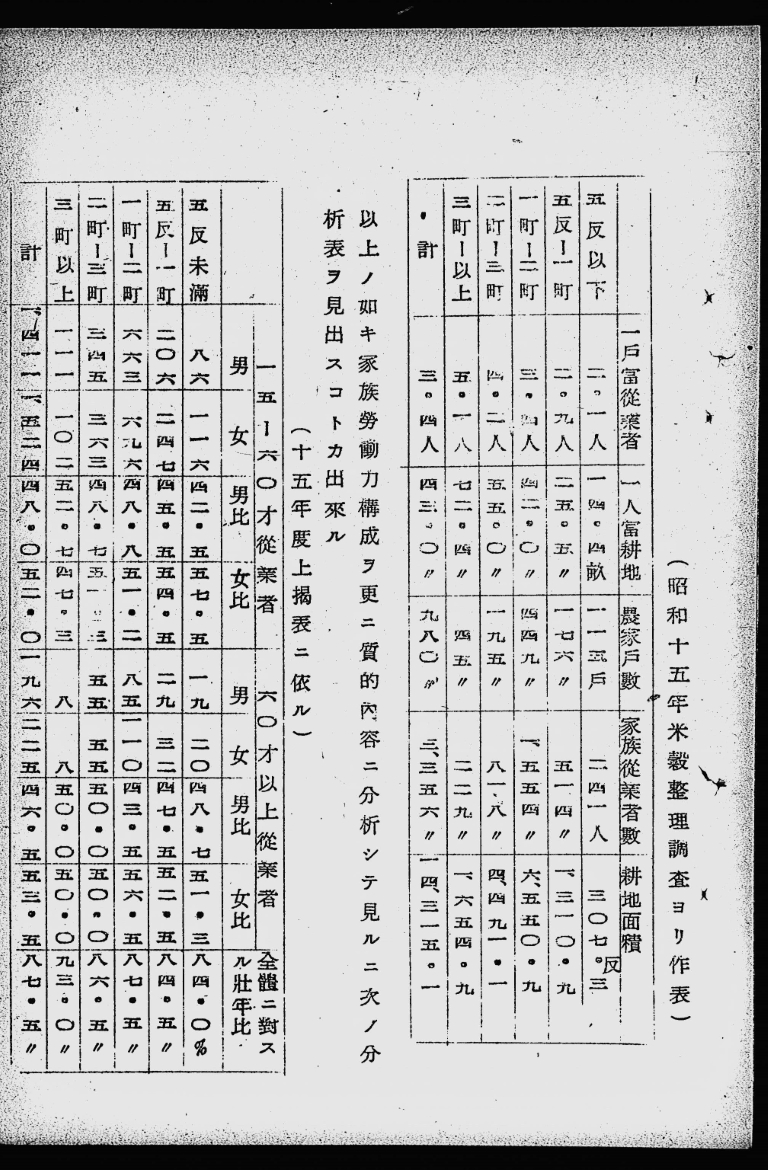 （昭和十五年米穀整理調査ヨリ作表）
一戸富從業者 一人富耕地 農家戸數 家族從業者數 耕地面積
五反以下 二・一人 一四・四畝 一一五戸 二四一人 三〇七・三反
五反ー一町 二・九人 二五・五〃 一七六〃 五一四〃 一、三一〇・九
一町ー二町 三・四人 四二・〇〃 四四九〃 一、五五四〃 六、五五〇・九
二町ー三町 四・二人 五五・〇〃 一九五〃 八一八〃 四、四九一・一
三町ー以上 五・一八 七二・四〃 四五〃 二二九〃 一、六五四・九
計 三・四人 四三・〇〃 九八〇〃 三、三五六〃 一四、三一五・一
以上ノ如キ家族勞働力構成ヲ更ニ質的内容ニ分析シテ見ルニ次ノ分
析表ヲ見出スコトカ出來ル
（十五年度上揭表ニ依ル）
一五ー六〇才從業者 六〇才以上從業者 全體ニ對スル壯年比
男 女 男比 女比 男 女 男比 女比
五反未滿 八六 一一六 四二・五 五七・五 一九 二〇 四八・七 五一・三 八四・〇%
五反ー一町 二〇六 二四七 四五・五 五四・五 二九 三二 四七・五 五二・五 八四・五〃
一町ー二町 六六三 六九六 四八・八 五一・二 八五 一一〇 四三・五 五六・五 八七・五〃
二町ー三町 三四五 三六三 四八・七 五一・三 五五 五五 五〇・〇 五〇・〇 八六・五〃
三町以上 一一一 一〇二 五二・七 四七・三 八 八 五〇・〇 五〇・〇 九三・〇〃
計 一、四一一 一、五二四 四八・〇 五二・〇 一九六 二二五 四六・五 五三・五 八七・五〃